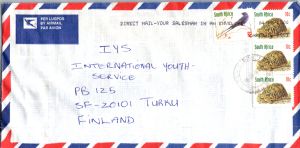 PER LUGPOS
BY AIRMAIL
PAR AVION
DIRECT MAIL-YOUR SALESMAN IN AN ENVEL
South Africa
South Africa
South Africa
South Africa
IYS
INTERNATIONAL YOUTH-
SERVICE
PB 125
SF-20101 TURKU
FINLAND